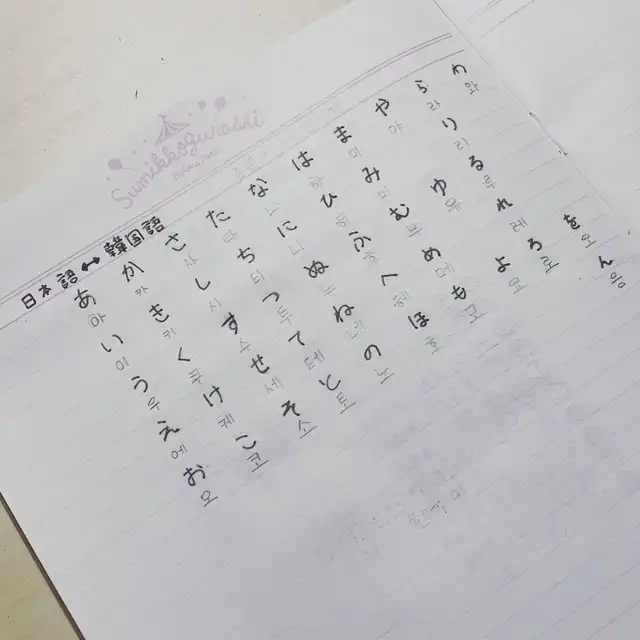 Sumikkogurashi
日本語 ↔ 韓国語
あ か さ た な は ま や ら わ
아 카 사 타 나 하 마 야 라 와
い き し ち に ひ み り
이 키 시 티 니 히 미 리
う く す つ ぬ ふ む ゆ る
우 쿠 수 투 누 후 무 유 루
え け せ て ね へ め れ
에 케 세 테 네 헤 메 레
お こ そ と の ほ も よ ろ を
오 코 소 토 노 호 모 요 로 오
ん
응